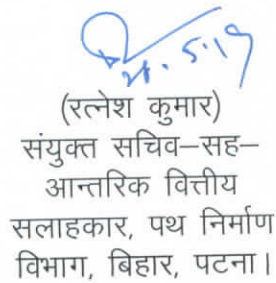 21.5.19
(रत्नेश कुमार)
संयुक्त सचिव–सह–
आन्तरिक वित्तीय
सलाहकार, पथ निर्माण
विभाग, बिहार, पटना।